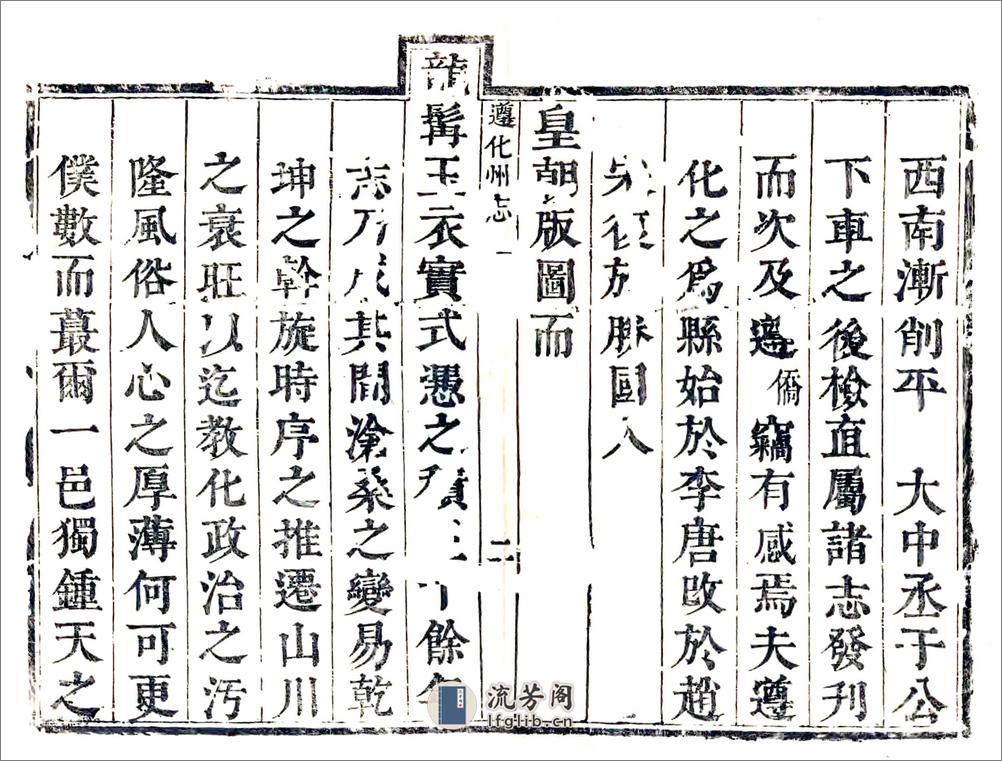 西南漸削平 大中丞于公
下車之後檢直屬諸志發刋
而次及遵僑竊有感焉夫遵
化之為縣始於李唐改於趙
勝國入
皇朝版圖而
遵化州志
二
龍髯玉衣實式憑之 餘
其間滄桑之變易乾
坤之斡旋時序之推遷山川
之衰旺以迄教化政治之汚
隆風俗人心之厚薄何可更
僕數而蕞爾一邑獨鍾天之
流芳阁
lfglib.cn